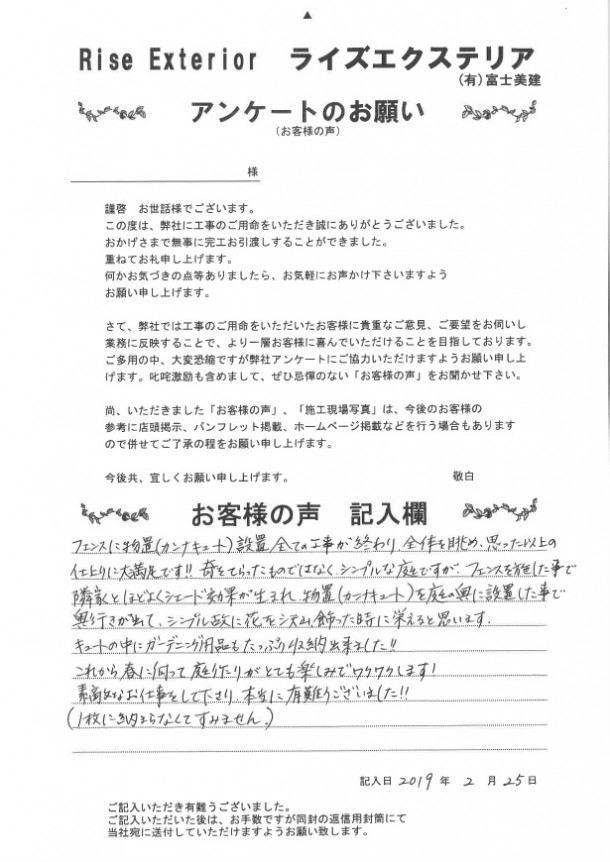 ▲
Rise Exterior ライズエクステリア
(有)富士美建
アンケートのお願い
(お客様の声)
様
謹啓 お世話様でございます。
この度は、弊社に工事のご用命をいただき誠にありがとうございました。
おかげさまで無事に完工お引渡しすることができました。
重ねてお礼申し上げます。
何かお気づきの点等ありましたら、お気軽にお声かけ下さいますよう
お願い申し上げます。
さて、弊社では工事のご用命をいただいたお客様に貴重なご意見、ご要望をお伺いし
業務に反映することで、より一層お客様に喜んでいただけることを目指しております。
ご多用の中、大変恐縮ですが弊社アンケートにご協力いただけますようお願い申し上
げます。叱咤激励も含めまして、ぜひ忌憚のない「お客様の声」をお聞かせ下さい。
尚、いただきました「お客様の声」、「施工現場写真」は、今後のお客様の
参考に店頭掲示、パンフレット掲載、ホームページ掲載などを行う場合もあります
ので併せてご了承の程をお願い申し上げます。
今後共、宜しくお願い申し上げます。 敬白
お客様の声 記入欄
フェンスに物置(カンナキュート)設置、全ての工事が終わり、全体を眺め、思った以上の
仕上りに大満足です!! 奇をてらったものではなく、シンプルな庭ですが、フェンスを施した事で
隣家とほどよくシェード効果が生まれ、物置(カンナキュート)を庭の奥に設置した事で
奥行きが出て、シンプル故に花を沢山飾った時に栄えると思います。
キュートの中にガーデニング用品もたっぷり収納出来ました!!
これから春に向って庭作りがとても楽しみでワクワクします!
素敵なお仕事をして下さり、本当に有難うございました!!
(1枚に納まらなくてすみません。)
記入日 2019 年 2 月 25 日
ご記入いただき有難うございました。
ご記入いただいた後は、お手数ですが同封の返信用封筒にて
当社宛に送付していただけますようお願い致します。